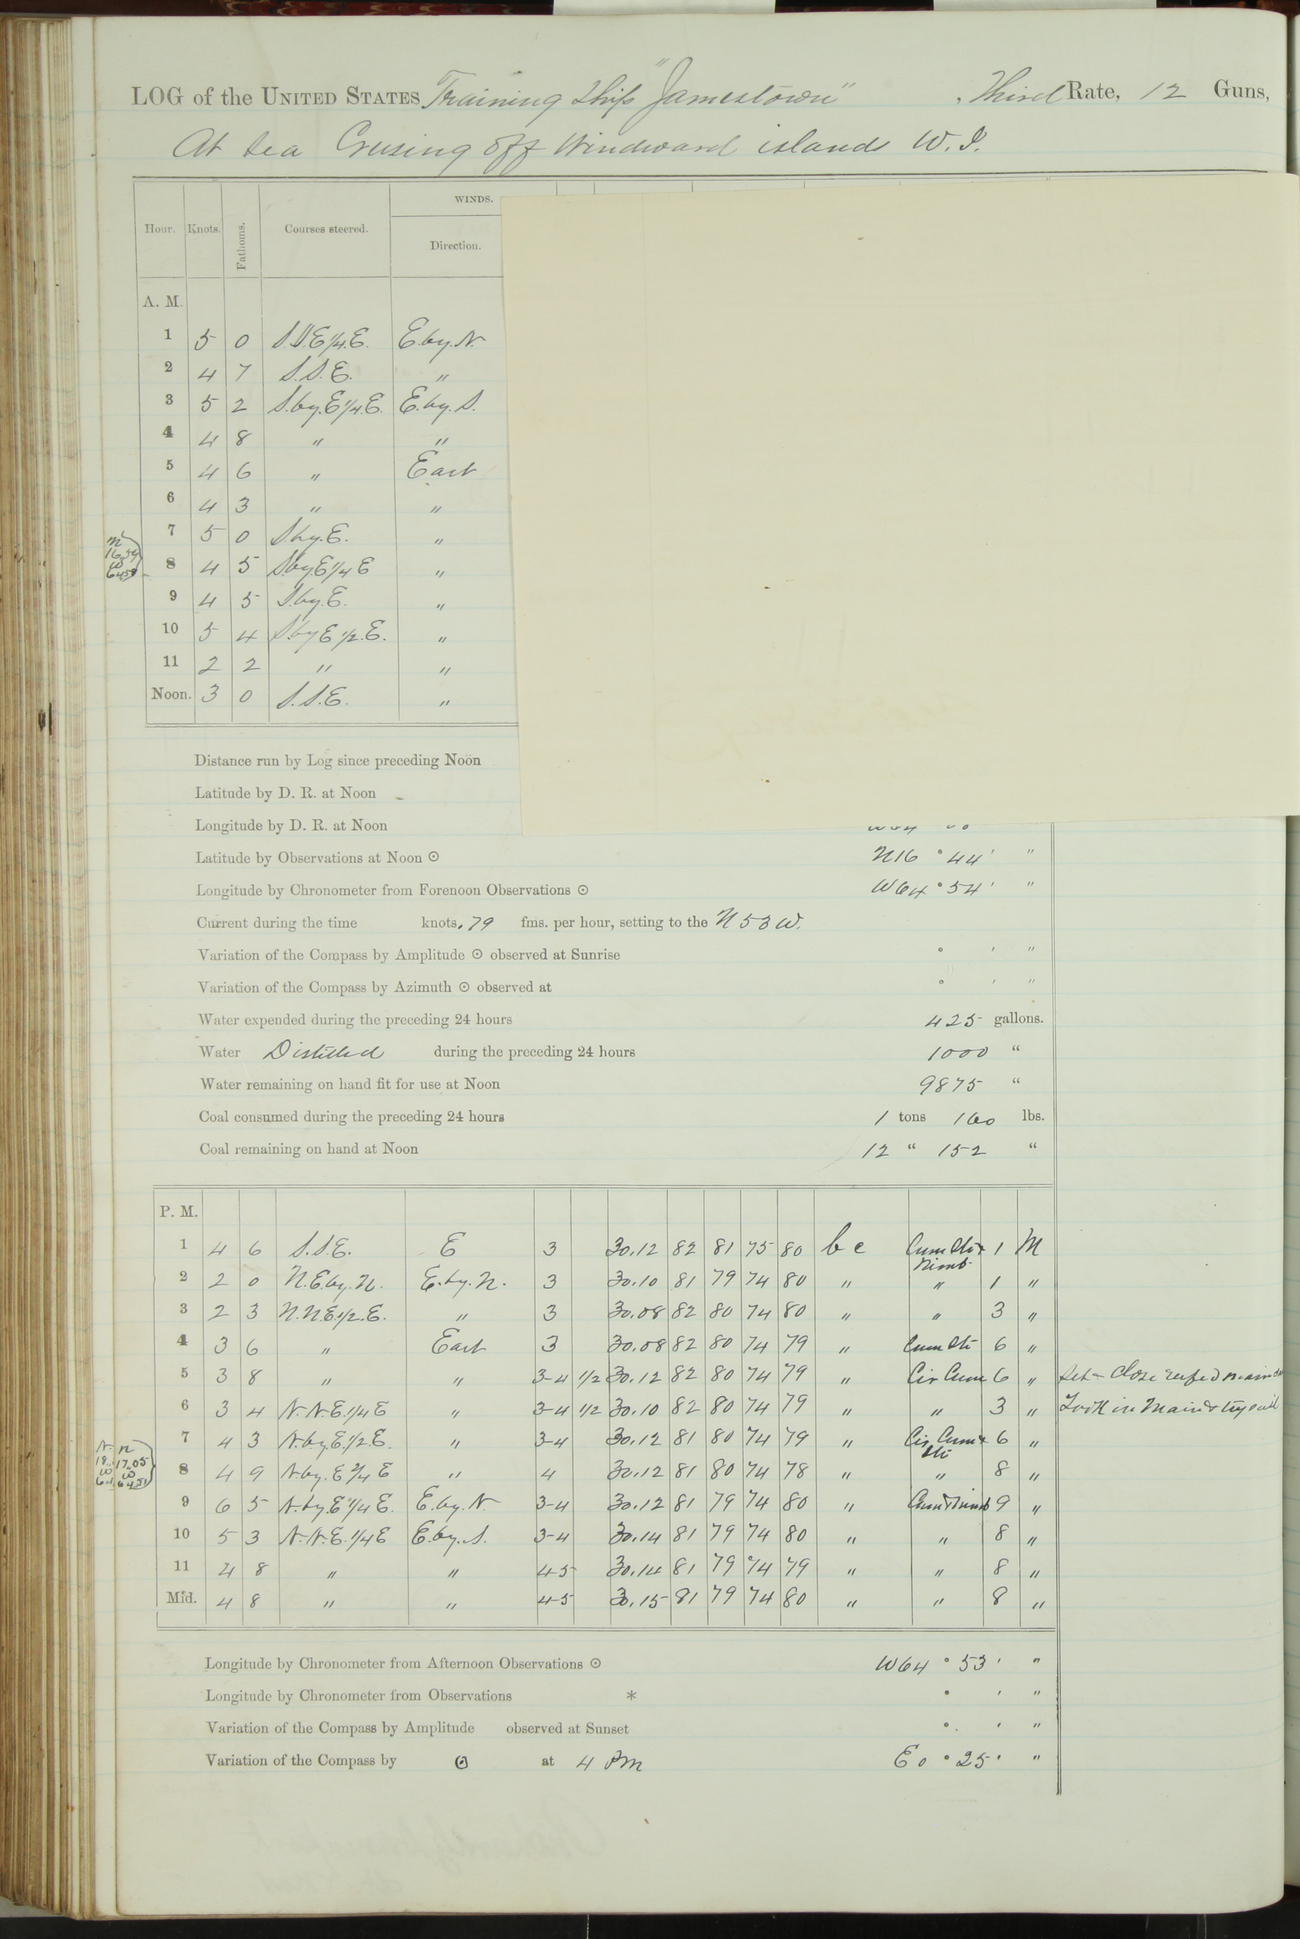 LOG of the UNITED STATES Training Ship "Jamestown", Third Rate, 12 Guns,
At Sea Cruising off Windward islands W. I.
WINDS.
Hour. Knots. Fathoms. Courses steered. Direction.
A. M.
1 5 0 S.S.E 1/4.E. E.by.N.
2 4 7 S.S.E. "
3 5 2 S.by.E 1/4.E. E.by.S.
4 4 8 " "
5 4 6 " East
6 4 3 " "
7 5 0 S.by.E. "
8 4 5 S.by E 1/4 E "
9 4 5 S.by.E. "
10 5 4 S.by E 1/2.E. "
11 2 2 " "
Noon. 3 0 S.S.E. "
Distance run by Log since preceding Noon
Latitude by D. R. at Noon
Longitude by D. R. at Noon
Latitude by Observations at Noon ⊙ N16 ° 44 ' "
Longitude by Chronometer from Forenoon Observations ⊙ W64 ° 54 ' "
Current during the time knots .79 fms. per hour, setting to the N 53 W.
Variation of the Compass by Amplitude ⊙ observed at Sunrise ° ' "
Variation of the Compass by Azimuth ⊙ observed at ° ' "
Water expended during the preceding 24 hours 425 gallons.
Water Distilled during the preceding 24 hours 1000 "
Water remaining on hand fit for use at Noon 9875 "
Coal consumed during the preceding 24 hours 1 tons 160 lbs.
Coal remaining on hand at Noon 12 " 152 "
P. M.
1 4 6 S.S.E. E 3 30.12 82 81 75 80 b c Cum Str & Nimb 1 M
2 2 0 N.E by. N. E.by.N. 3 30.10 81 79 74 80 " " 1 "
3 2 3 N.N.E. 1/2.E. " 3 30.08 82 80 74 80 " " 3 "
4 3 6 " East 3 30.08 82 80 74 79 " Cum Str 6 "
5 3 8 " " 3-4 1/2 30.12 82 80 74 79 " Cir Cum 6 " Set Close reefed main
6 3 4 N.N.E. 1/4 E " 3-4 1/2 30.10 82 80 74 79 " " 3 " Took in Main trysail
7 4 3 N.by E. 1/2 E. " 3-4 30.12 81 80 74 79 " Cir Cum & Str 6 "
8 4 9 N.by. E 3/4 E " 4 30.12 81 80 74 78 " " 8 "
9 6 5 N.by E 1/4 E. E.by.N 3-4 30.12 81 79 74 80 " Cum & Nimb 9 "
10 5 3 N.N.E. 1/4 E E.by.S. 3-4 30.14 81 79 74 80 " " 8 "
11 4 8 " " 4-5 30.14 81 79 74 79 " " 8 "
Mid. 4 8 " " 4-5 30.15 81 79 74 80 " " 8 "
Longitude by Chronometer from Afternoon Observations ⊙ W64 ° 53 ' "
Longitude by Chronometer from Observations * ° ' "
Variation of the Compass by Amplitude observed at Sunset ° ' "
Variation of the Compass by ⊙ at 4 PM E 0 ° 25 ' "